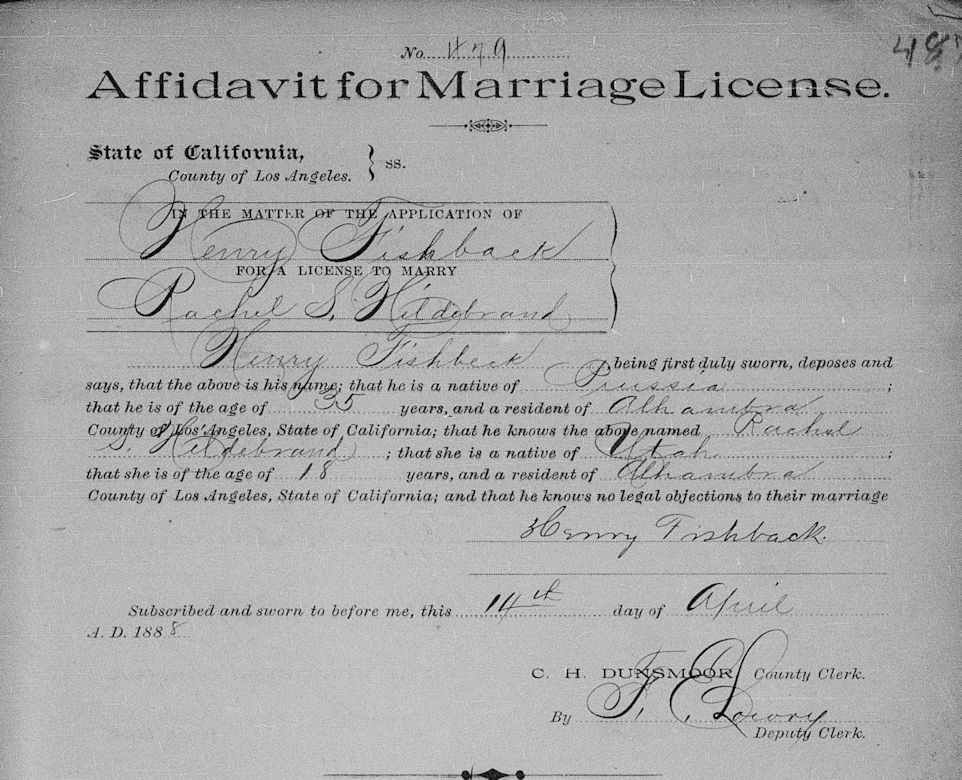 No. 479
48
Affidavit for Marriage License.
State of California,
County of Los Angeles. } ss.
IN THE MATTER OF THE APPLICATION OF
Henry Fishback
FOR A LICENSE TO MARRY
Rachel S. Hildebrand
Henry Fishbeck being first duly sworn, deposes and
says, that the above is his name; that he is a native of Prussia ;
that he is of the age of 35 years, and a resident of Alhambra
County of Los Angeles, State of California; that he knows the above named Rachel
S. Hildebrand ; that she is a native of Utah ;
that she is of the age of 18 years, and a resident of Alhambra
County of Los Angeles, State of California; and that he knows no legal objections to their marriage
Henry Fishback.
Subscribed and sworn to before me, this 14th day of April
A. D. 1888
C. H. DUNSMOOR County Clerk.
By F. E. Lowry
Deputy Clerk.